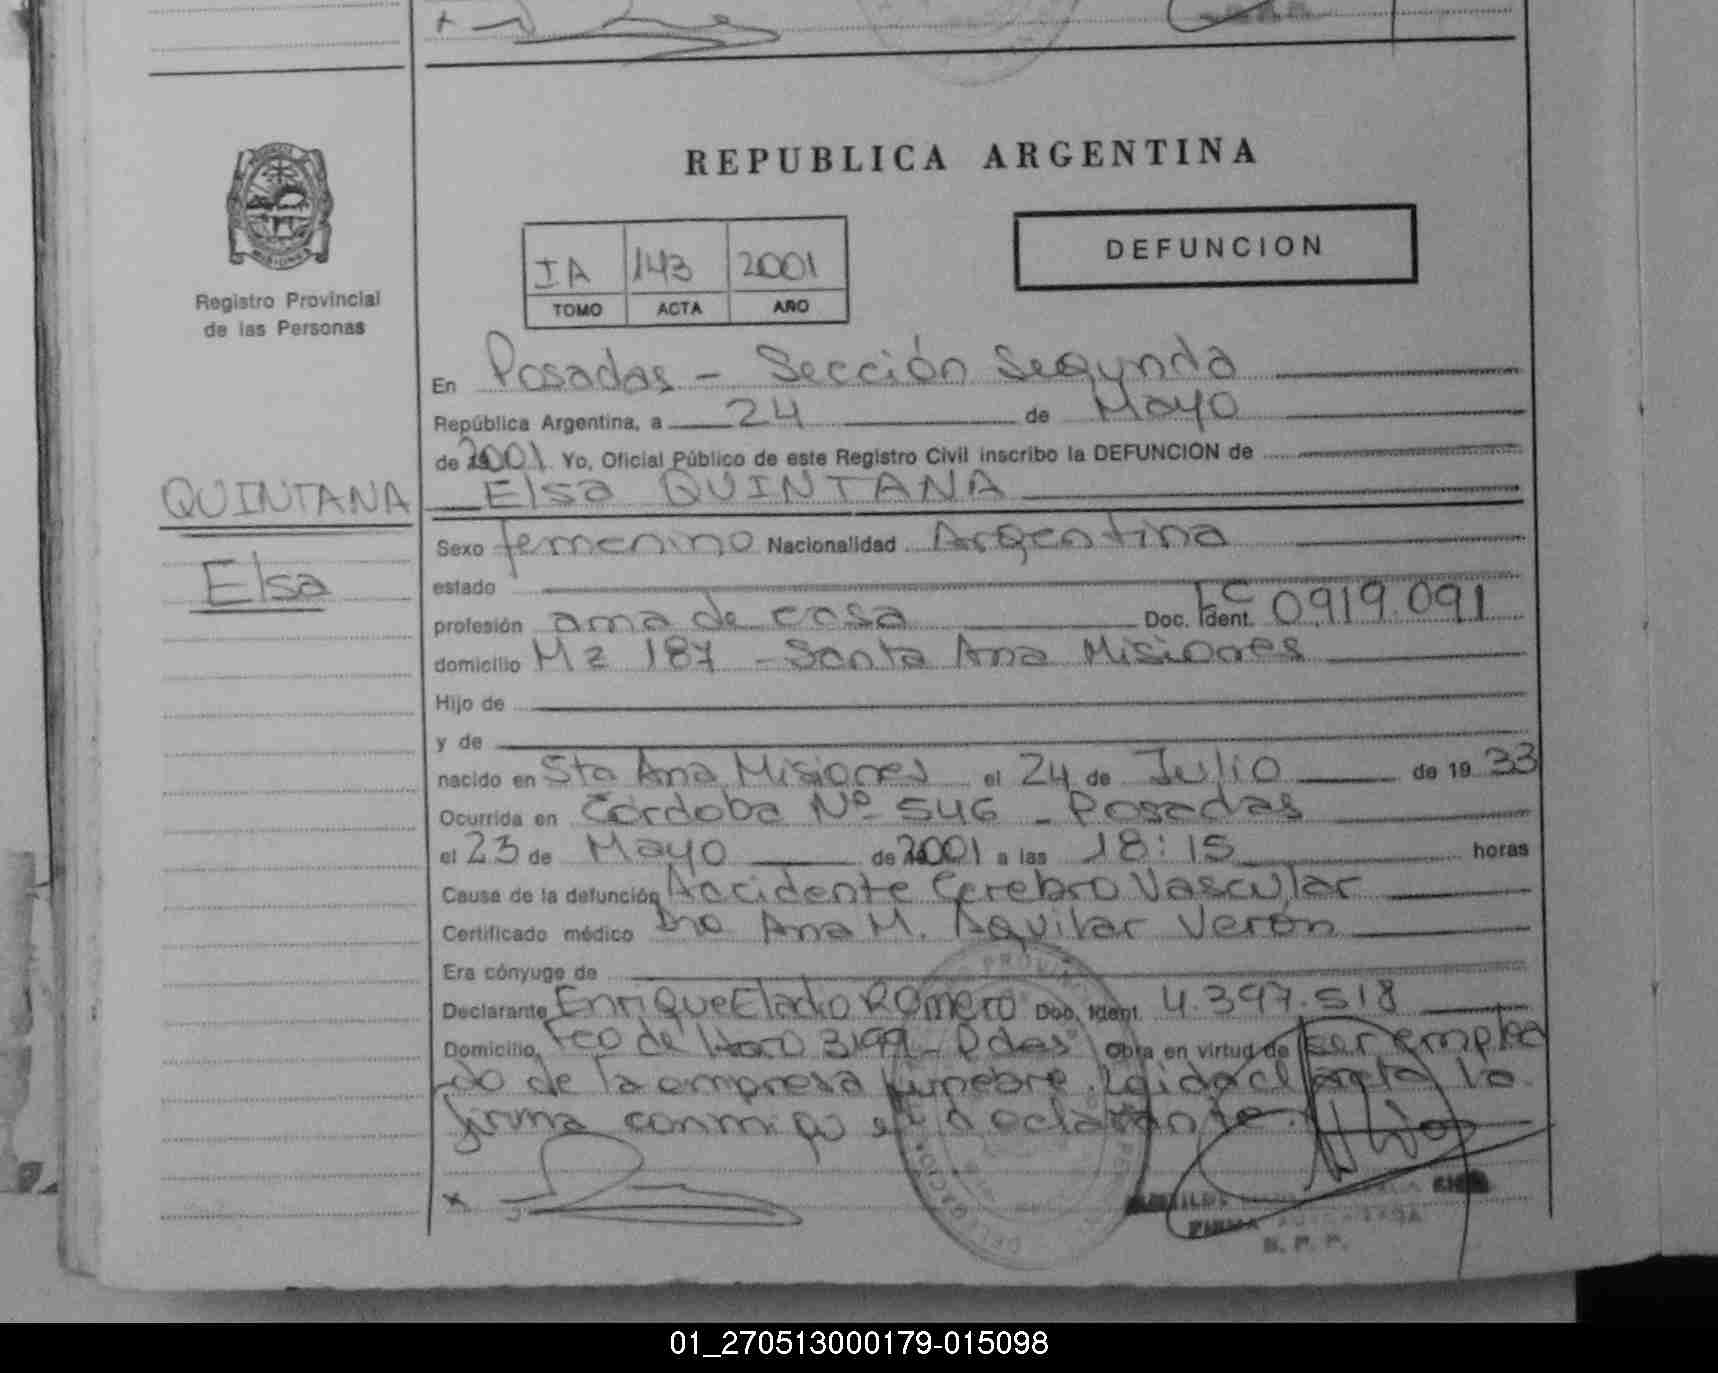 REPUBLICA ARGENTINA
MISIONES
Registro Provincial
de las Personas
IA 143 2001
TOMO ACTA AÑO
DEFUNCION
En Posadas - Sección Segunda
República Argentina, a 24 de Mayo
de 2001. Yo, Oficial Público de este Registro Civil inscribo la DEFUNCION de
QUINTANA
Elsa
Elsa QUINTANA
Sexo femenino Nacionalidad Argentina
estado
profesión ama de casa Doc. Ident. LC 0919.091
domicilio Mz 187 - Santa Ana Misiones
Hijo de
y de
nacido en Sta Ana Misiones el 24 de Julio de 19 33
Ocurrida en Córdoba Nº 546 - Posadas
el 23 de Mayo de 2001 a las 18:15 horas
Cause de la defunción Accidente Cerebro Vascular
Certificado médico Dra Ana M. Aguilar Verón
Era cónyuge de
Declarante Enrique Eladio Romero Doc. Ident. 4.397.518
Domicilio Fco de Haro 3199 - Pdas Obra en virtud de ser emplea
do de la empresa funebre. Leida el acta la
firma conmigo el declarante.
x
FIRMA AUTORIZADA
R. P. P.
01_270513000179-015098